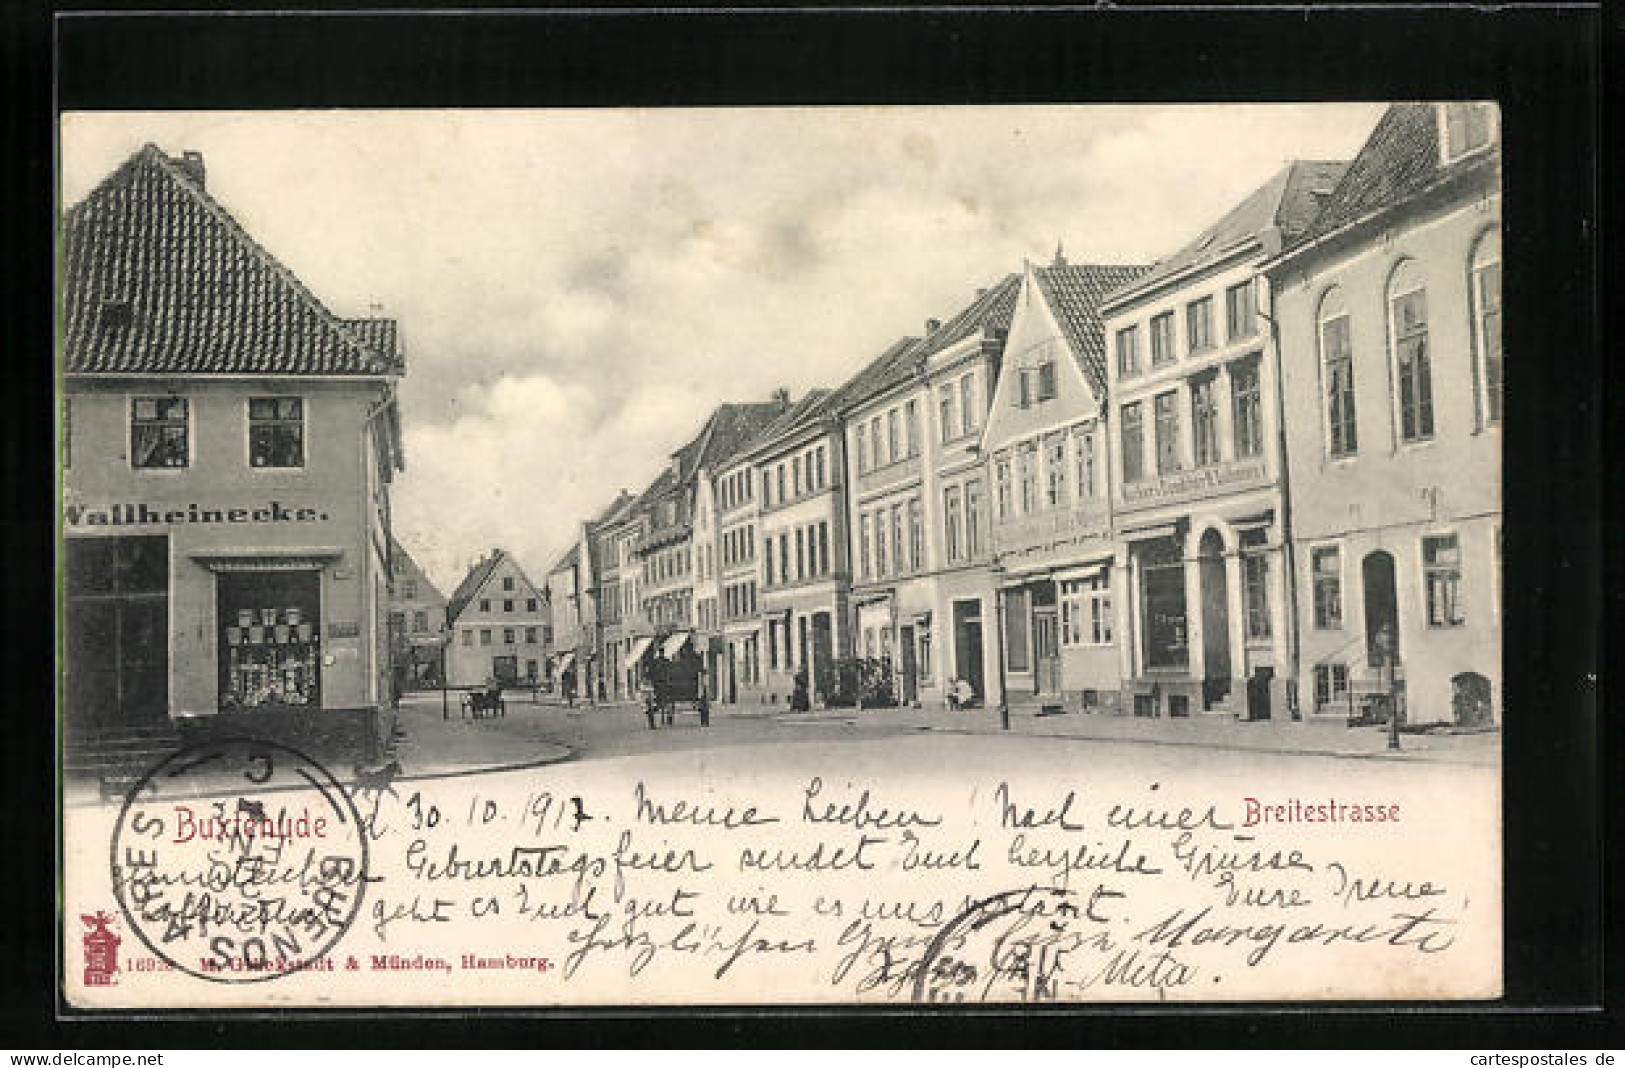 Wallheinecke.
Buxtehude
Breitestrasse
d. 30. 10. 1917. Meine Lieben! Nach einer
Geburtstagsfeier sendet Euch herzliche Grüsse
Eure Irene,
geht es Euch gut wie es uns
Herzlichen Gruss Eure Margarete
Meta.
BUENOS AIRES
16928 M. Glückstadt & Münden, Hamburg.
cartespostales.de